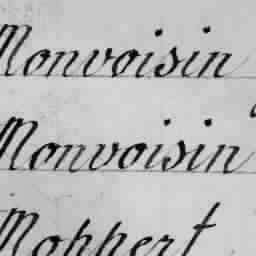 Monvoisin
Monvoisin
Moppert